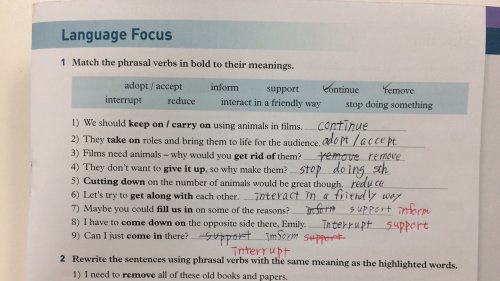 Language Focus
1 Match the phrasal verbs in bold to their meanings.
adopt / accept inform support continue remove
interrupt reduce interact in a friendly way stop doing something
1) We should keep on / carry on using animals in films. continue
2) They take on roles and bring them to life for the audience. adopt / accept
3) Films need animals – why would you get rid of them? remove remove
4) They don't want to give it up, so why make them? stop doing sth
5) Cutting down on the number of animals would be great though. reduce
6) Let's try to get along with each other. interact in a friendly way
7) Maybe you could fill us in on some of the reasons? inform support inform
8) I have to come down on the opposite side there, Emily. interrupt support
9) Can I just come in there? support inform support
interrupt
2 Rewrite the sentences using phrasal verbs with the same meaning as the highlighted words.
1) I need to remove all of these old books and papers.